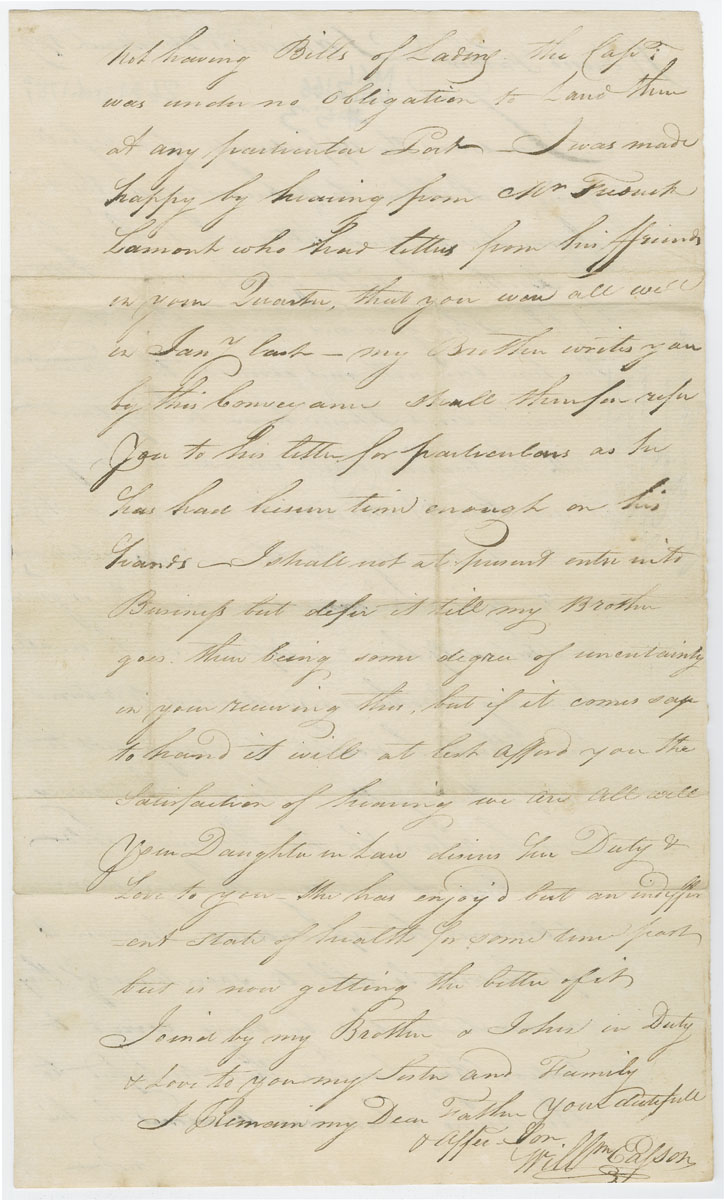 not having Bills of Lading the Capt:
was under no obligation to Land them
at any particular Port — I was made
happy by hearing from Mr Fredrick
Lamont who had letters from his ffriends
in your Quarter, that you were all well
in Jany last — my Brother writes you
by this Conveyance shall therefore refer
You to his letter for particulars as he
has had liesure time enough on his
hands — I shall not at present enter into
Business but defer it till my Brother
goes. there being some degree of uncertainty
in your receiving this, but if it comes safe
to hand it will at lest afford you the
Satisfaction of hearing we are all well
Your Daughter in Law desires her Duty &
Love to you — She has enjoy'd but an indiffer
-ent state of health for some time past
but is now getting the better of it
Joined by my Brother & John in Duty
& Love to you my Sister and Family
I Remain my Dear Father your dutifull
& Affec. Son
Willm Easson